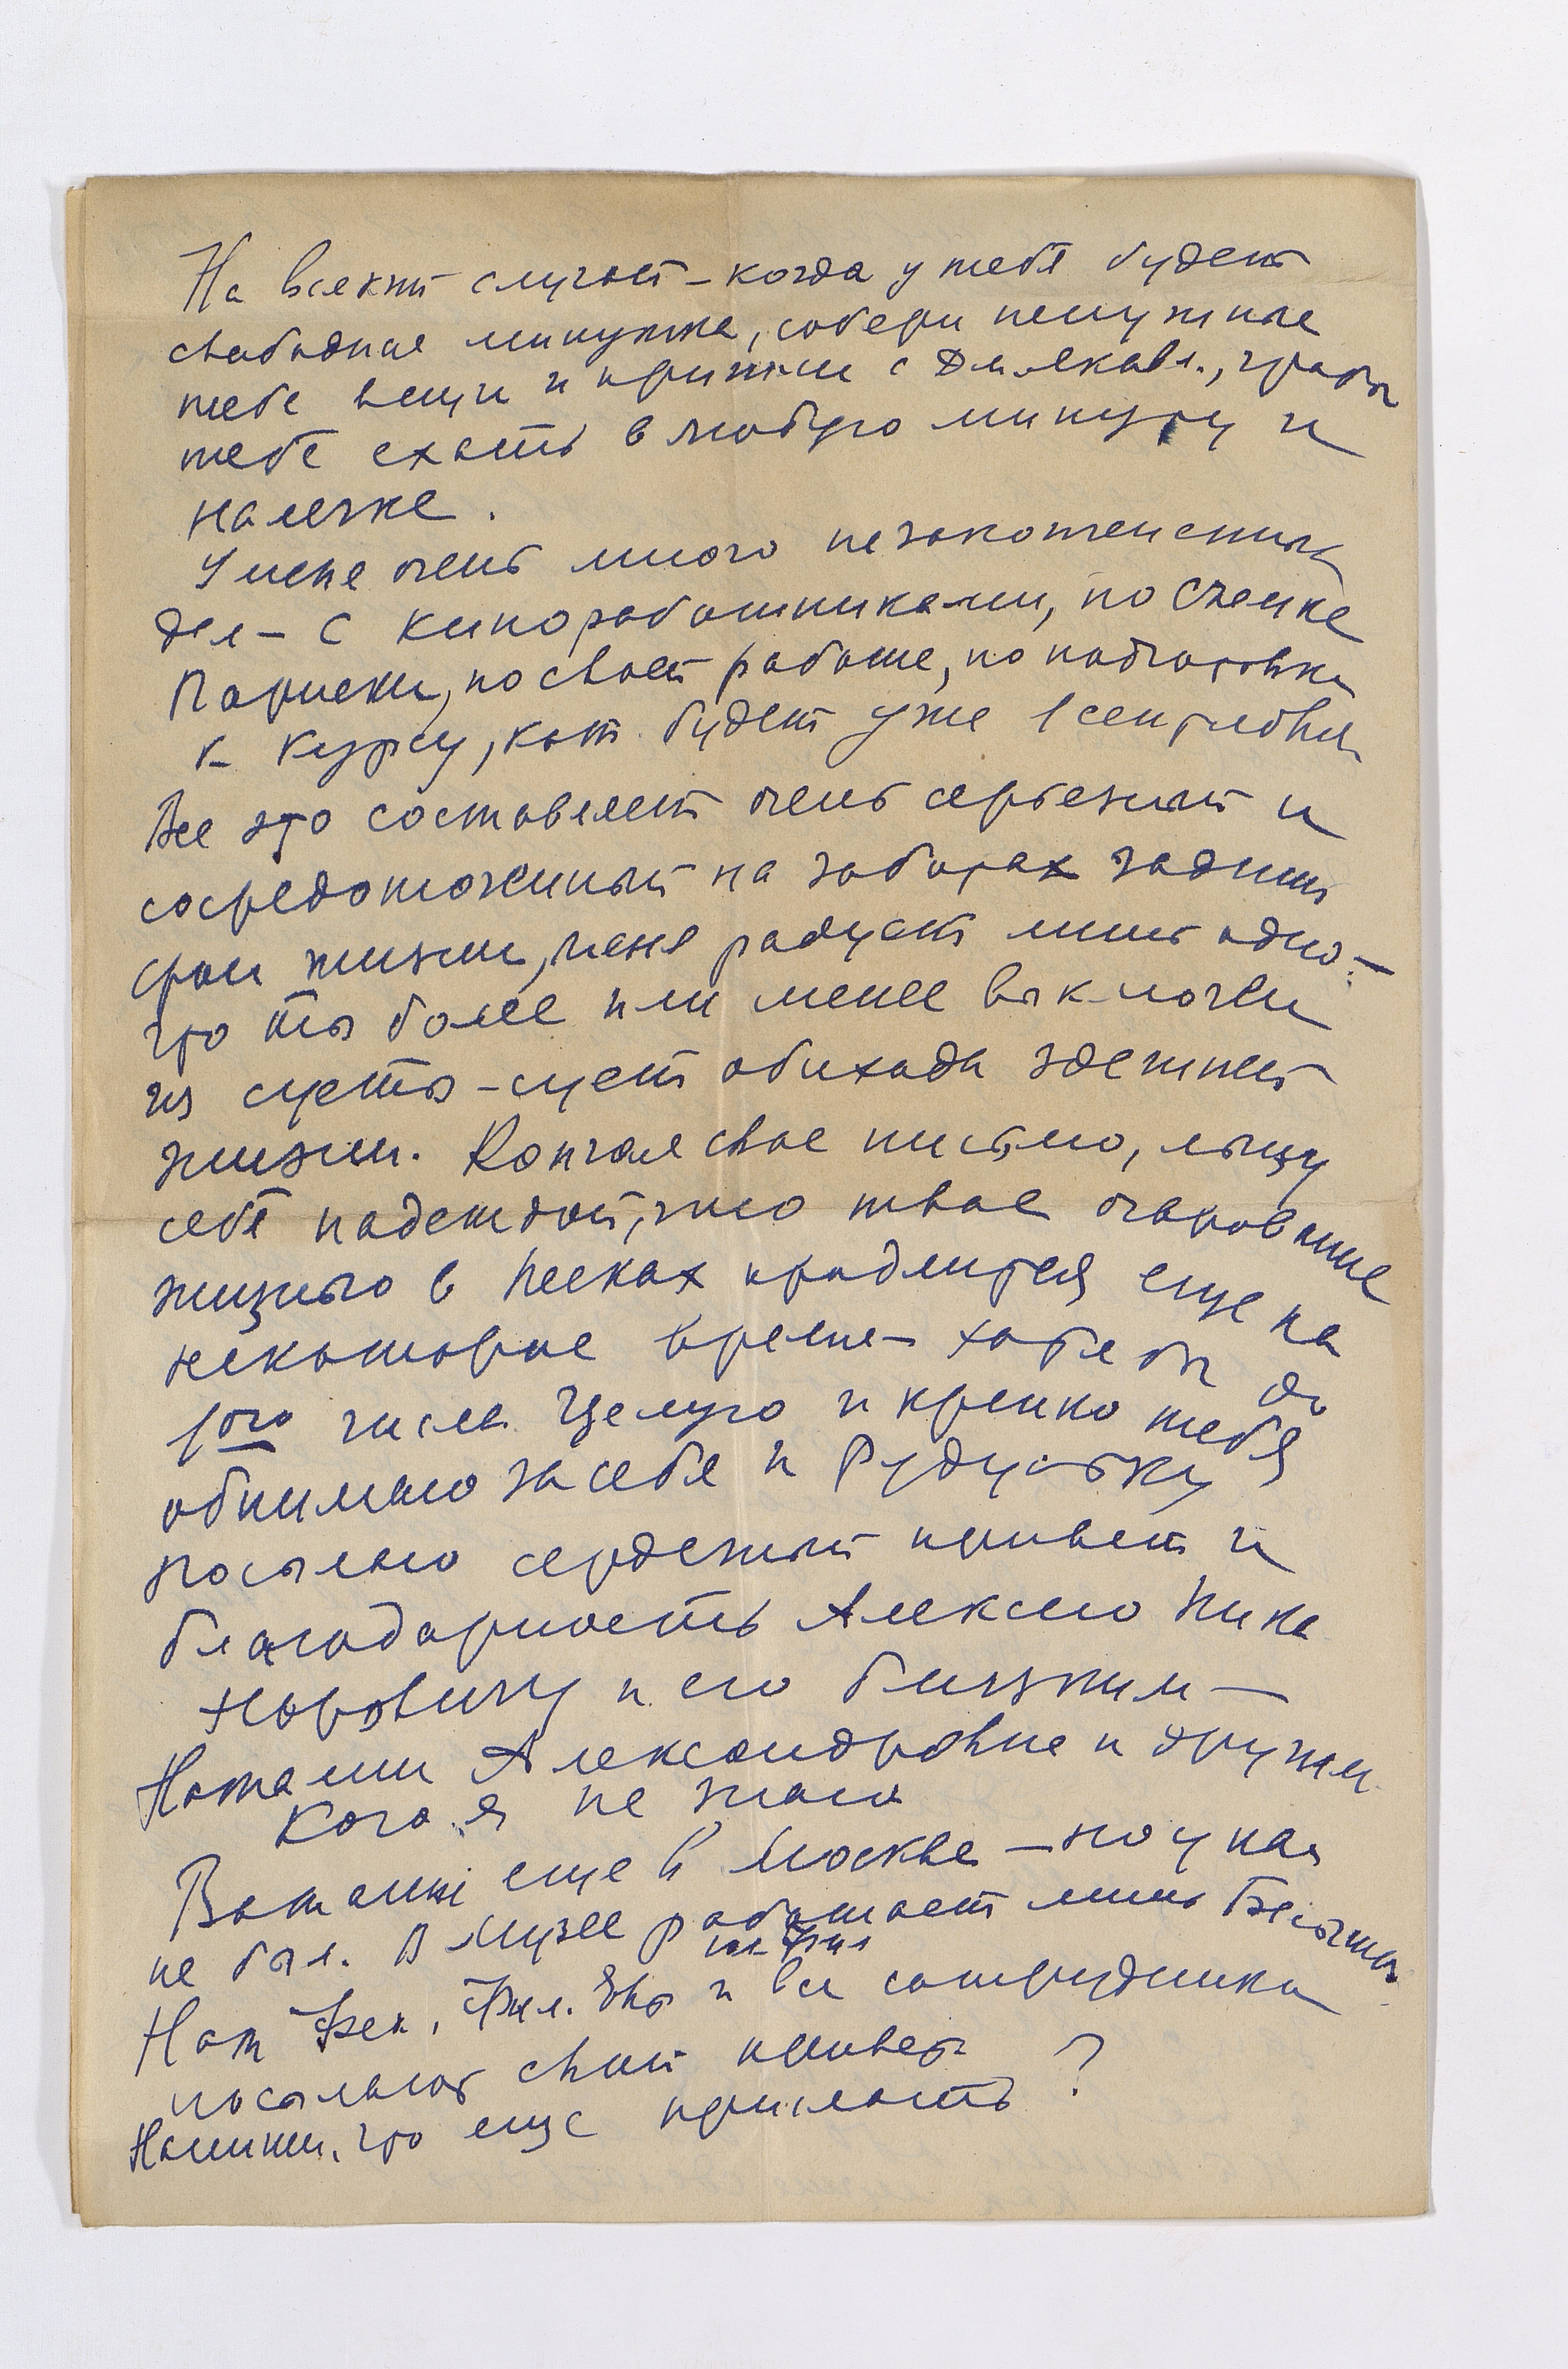 На всякий случай – когда у тебя будет
свободная минутка, собери ненужные
тебе вещи и пришли с Дм. Яковл., чтобы
тебе ехать в любую минуту и
налегке.
У меня очень много незаконченных
дел – с киноработниками, по съемке
Париски, по своей работе, по подготовке
к курсу, кот. будет уже 1 сентября
Все это составляет очень серьезный и
сосредоточенный на заботах
строй жизни, меня радует лишь одно –
что ты более или менее выключен
из суеты-сует обихода здешней
жизни. Кончая свое письмо, льщу
себя надеждой, что твое очарование
жизнью в Песках продлится еще на
некоторое время – хотя бы до
1ого числа. Целую и крепко тебя
обнимаю за себя и Рудуську
посылаю сердечный привет и
благодарность Алексею Ника
норовичу и его близким –
Наталии Александровне и другим
кого я не знаю
Ватагин еще в Москве – но у нас
не был. В Музее работает лишь
Над. Фил. Евг и все сотрудники
посылают свой привет
Напиши, что еще прислать?